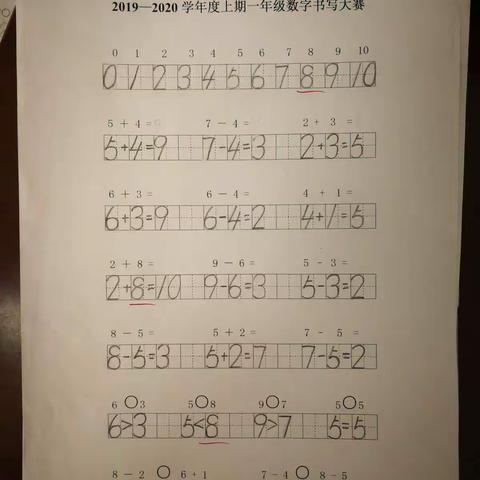 2019—2020 学年度上期一年级数字书写大赛
0 1 2 3 4 5 6 7 8 9 10
0 1 2 3 4 5 6 7 8 9 10
5 + 4 = 7 - 4 = 2 + 3 =
5+4=9 7-4=3 2+3=5
6 + 3 = 6 - 4 = 4 + 1 =
6+3=9 6-4=2 4+1=5
2 + 8 = 9 - 6 = 5 - 3 =
2+8=10 9-6=3 5-3=2
8 - 5 = 5 + 2 = 7 - 5 =
8-5=3 5+2=7 7-5=2
6 ○ 3 5 ○ 8 9 ○ 7 5 ○ 5
6>3 5<8 9>7 5=5
8 - 2 ○ 6 + 1 7 - 4 ○ 8 - 5